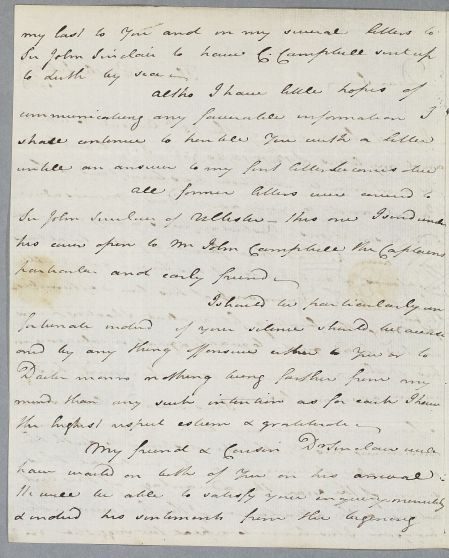 my last to You and on my several letters to
Sir John Sinclair to have C. Campbell sent up
to Leith by sea —
altho I have little hopes of
communicating any favorable information I
shall continue to trouble You with a letter
untill an answer to my first letter becomes due
All former letters were covered to
Sir John Sinclair of Ulbster — this one I send under
his cover open to Mr John Campbell the Captains
particular and early friend —
I should be particularly un
fortunate indeed if your silence should be occasi
oned by any thing offensive either to You or to
Doctor nothing being farther from my
mind than any such intention as for each I have
the highest respect esteem & gratitude —
My friend & Cousin Dr Sinclair will
have waited on both of You on his arrival
He will be able to satisfy your inquiry minutely
& indeed his sentiments from the begining